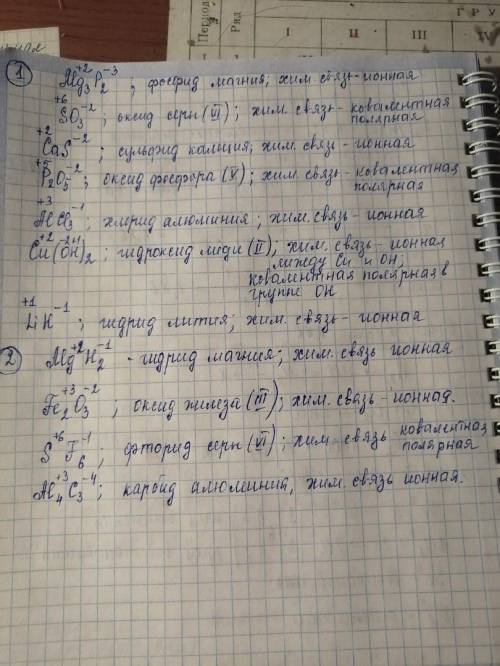 Период
Ряд
ГРУ
I II III IV
1 +2 -3
Mg3P2 ; фосфид магния; хим. связь-ионная
+6 -2
SO3 ; оксид серы (VI); хим. связь- ковалентная полярная
+2 -2
CaS ; сульфид кальция; хим. связь - ионная
+5 -2
P2O5 ; оксид фосфора (V); хим. связь - ковалентная полярная
+3 -1
AlCl3 ; хлорид алюминия; хим. связь - ионная
+2 -2+1
Cu(OH)2 ; гидроксид меди (II); хим. связь - ионная
между Cu и OH;
ковалентная полярная в
группе OH
+1 -1
LiH ; гидрид лития; хим. связь - ионная
2 Mg+2H2-1 - гидрид магния; хим. связь ионная
Fe2+3O3-2 ; оксид железа (III); хим. связь - ионная.
S+6F6-1 ; фторид серы (VI); хим. связь ковалентная полярная
Al4+3C3-4 ; карбид алюминия, хим. связь ионная.